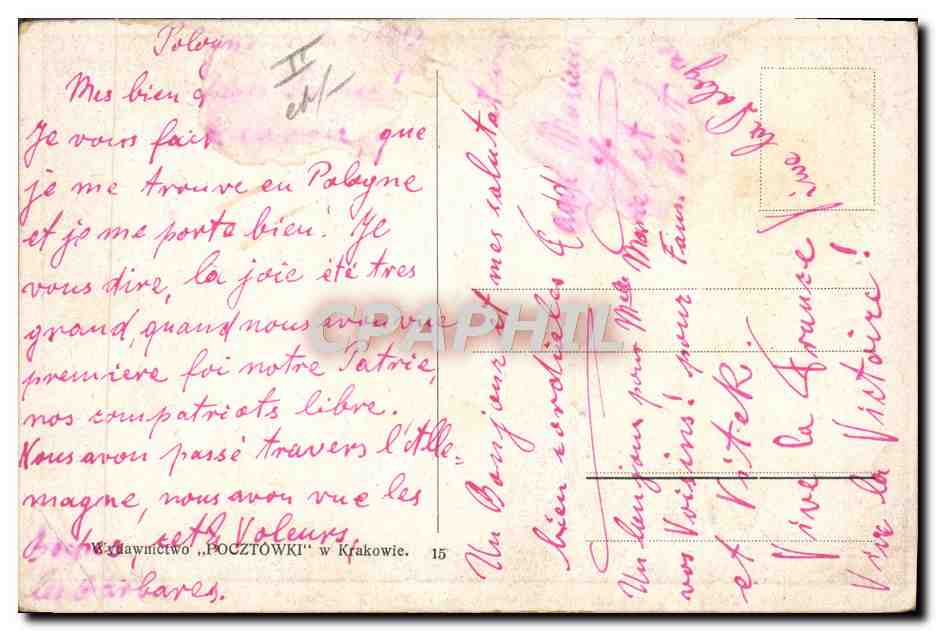 Pologne
II
Mes bien
Je vous fait que
je me trouve en Pologne
et je me porte bien! Je
vous dire, la joie été tres
grand, quand nous avon vue
premiere foi notre Patrie,
nos compatriots libre.
Nous avon passé travers l'Alle-
magne, nous avon vue les
Voleurs,
les barbares.
Wydawnictwo „POCZTÓWKI" w Krakowie. 15
Un Bonjour et mes salutat
bien cordiales
Un bonjour pour Melle Marie et
vos Voisins! pour
et
Vive la France Vive la Pologne
Vive la Victoire!
CPAPHIL